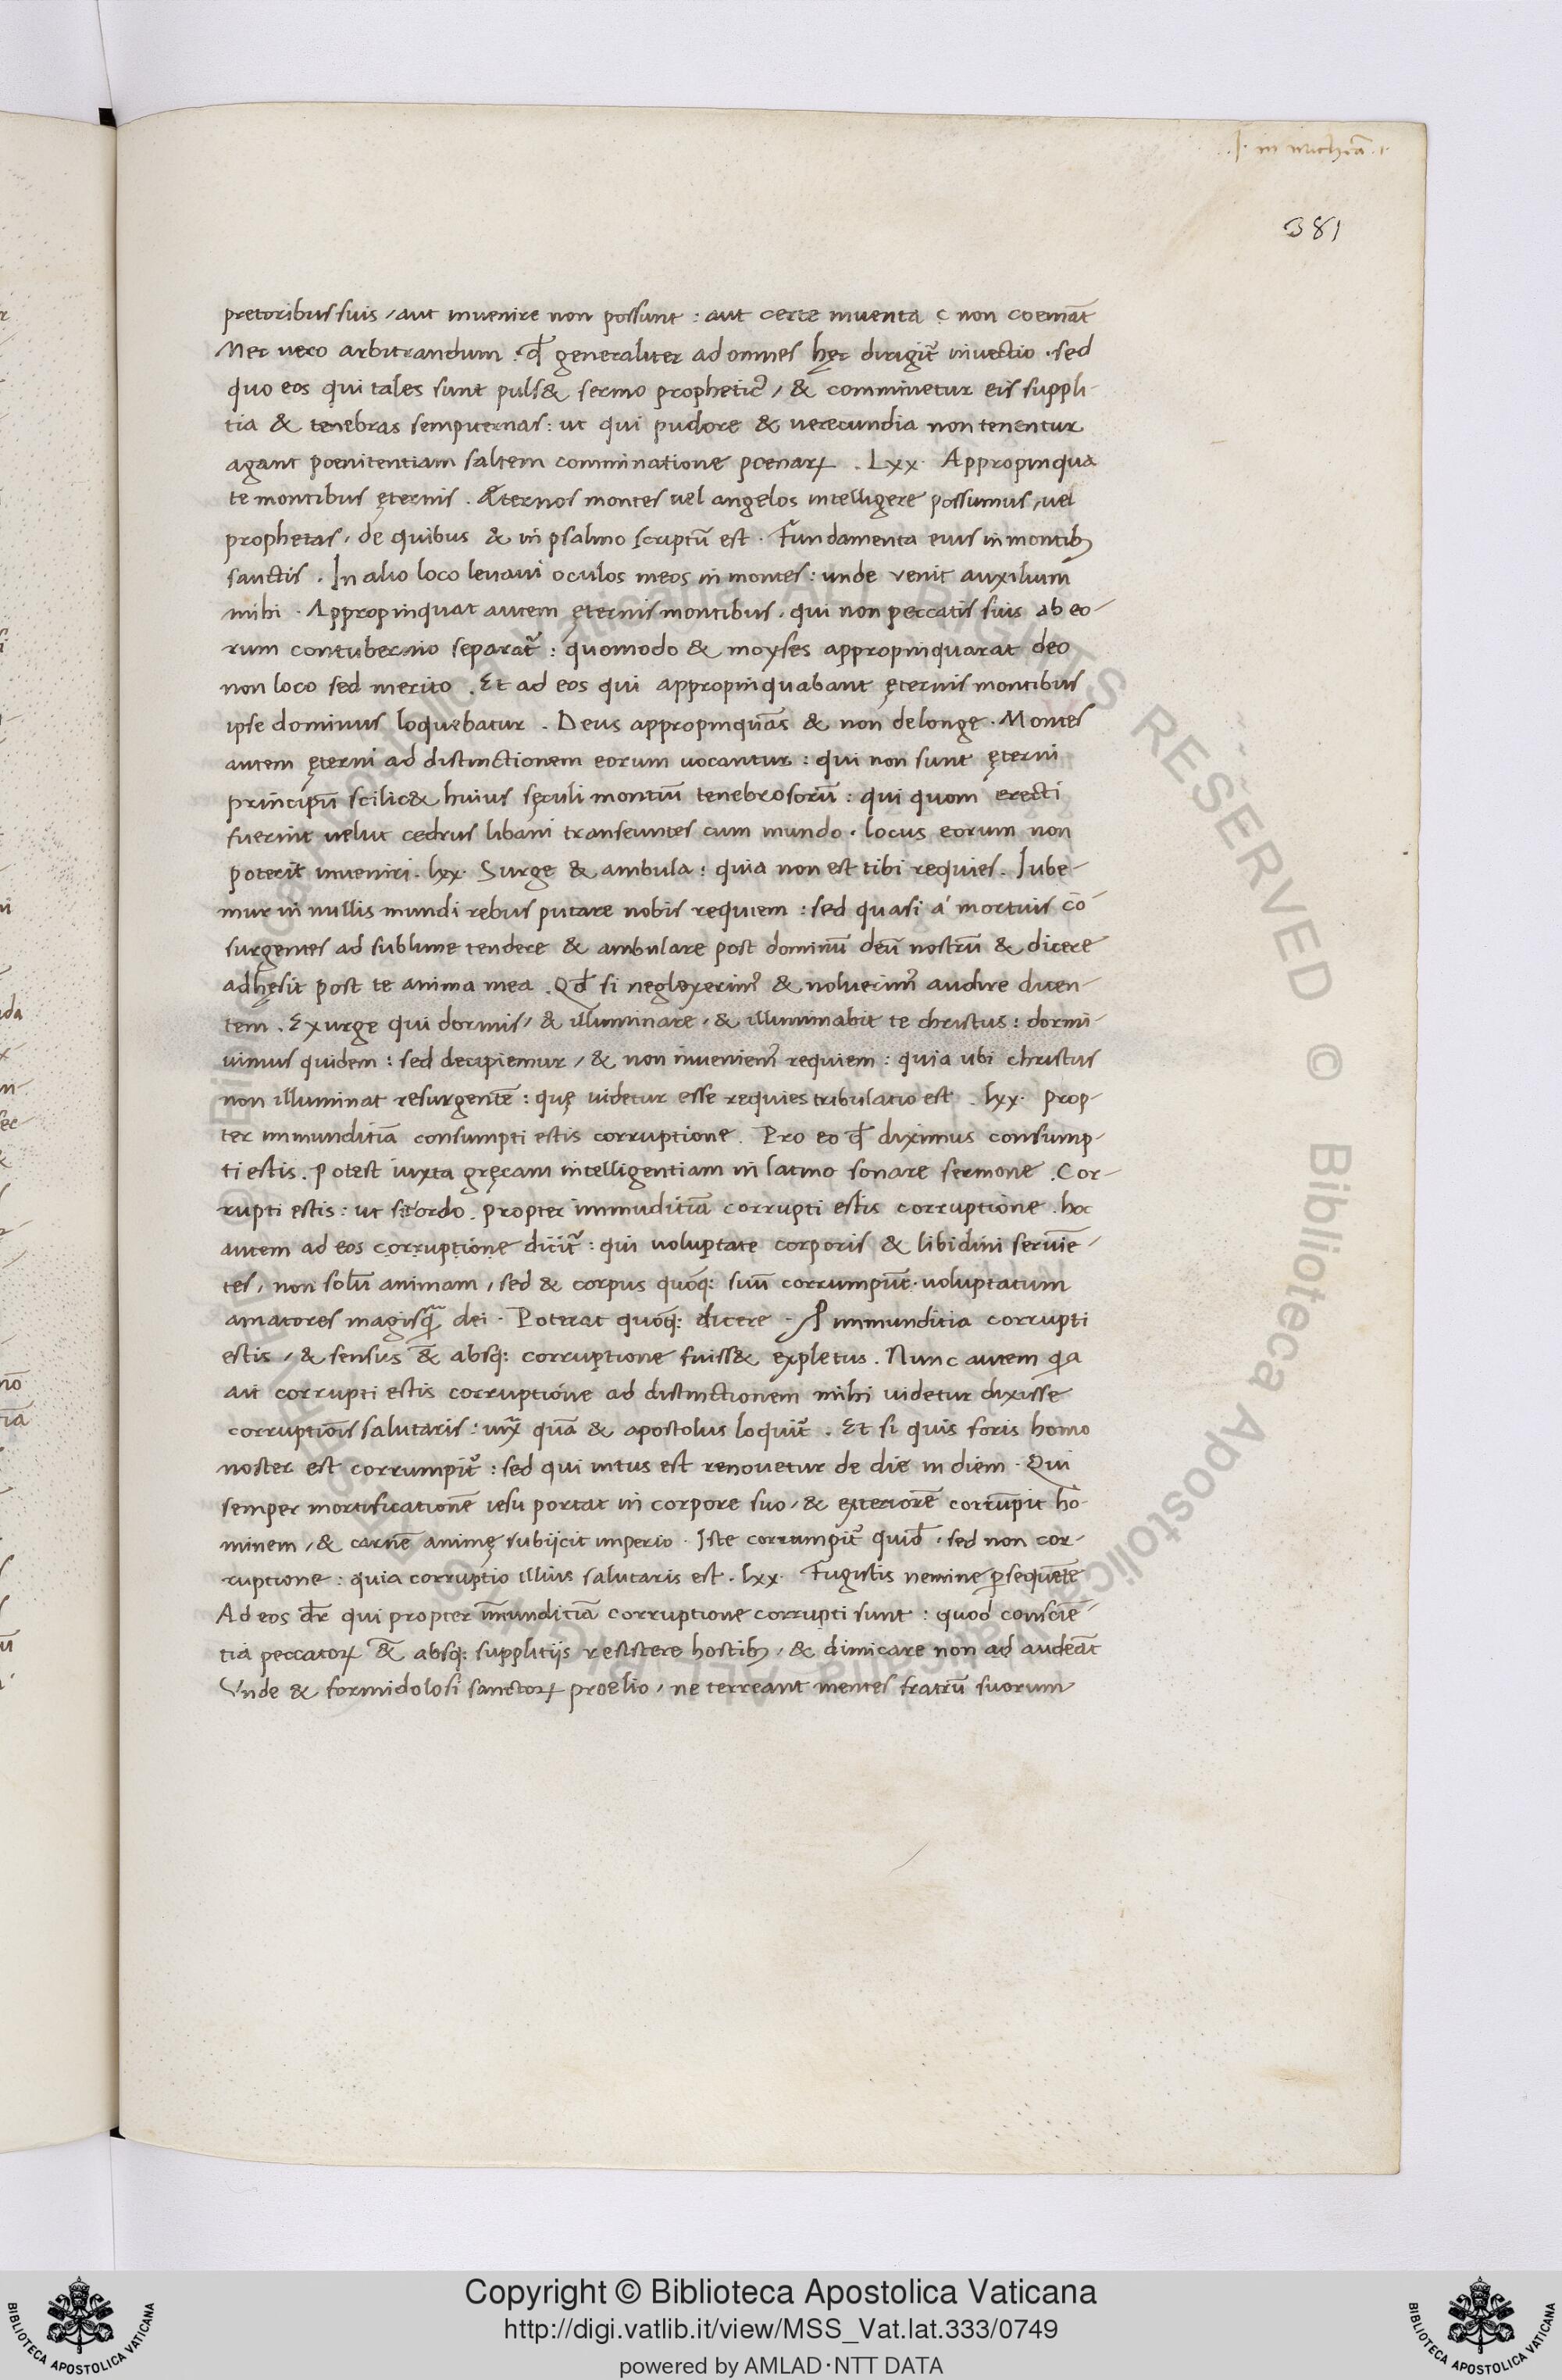 .I. in micheā.1.
381
pretoribus suis / aut inuenire non possunt : aut certe inuenta non coemāt
Nec uero arbitrandum . qđ generaliter ad omnes hęc dirigit᷑ inuectio . sed
quo eos qui tales sunt puls& sermo prophetic᷒ / & comminetur eis suppli-
tia & tenebras sempiternas : ut qui pudore & uerecundia non tenentur
agant poenitentiam saltem comminatione poenaꝝ . Lxx . Appropinqua
te montibus ęternis . Æternos montes uel angelos intelligere possumus , uel
prophetas , de quibus & in psalmo scriptū est . Fundamenta eius in montibꝫ
sanctis . In alio loco leuaui oculos meos in montes : unde venit auxilium
mihi . Appropinquat autem ęternis montibus , qui non peccatis suis ab eo-
rum contubernio separat᷑ : quomodo & moyses appropinquarat deo
non loco sed merito . Et ad eos qui appropinquabant ęternis montibus
ipse dominus loquebatur . Deus appropinquās & non de longe . Montes
autem ęterni ad distinctionem eorum uocantur : qui non sunt ęterni
principū scilic& huius sęculi montiū tenebrosorū : qui quom erecti
fuerint uelut cedrus libani transeuntes cum mundo . locus eorum non
poterit inueniri . lxx . Surge & ambula : quia non est tibi requies . Iube-
mur in nullis mundi rebus putare nobis requiem : sed quasi á mortuis cō
surgentes ad sublime tendere & ambulare post dominū deū nostrū & dicere
adhęsit post te anima mea . Qđ si neglexerim᷒ & noluerim᷒ audire dicen-
tem . Exurge qui dormis / & illuminare / & illuminabit te christus : dormi-
uimus quidem : sed decipiemur / & non inueniem᷒ requiem : quia ubi christus
non illuminat resurgentē : quę uidetur esse requies tribulatio est . lxx . prop-
ter immunditiā consumpti estis corruptione . Pro eo qđ diximus consump-
ti estis . potest iuxta gręcam intelligentiam in latino sonare sermone . Cor-
rupti estis : ut sit ordo . propter immuditiā corrupti estis corruptione . hoc
autem ad eos corruptione dicit᷑ : qui uoluptate corporis & libidini seruiē-
tes / non solū animam / sed & corpus quoqꝫ suū corrumpūt . uoluptatum
amatores magisq̄ dei . Poterat quoqꝫ dicere . ꝓ immunditia corrupti
estis / & sensus & absqꝫ corruptione fuiss& expletus . Nunc autem qa
ait corrupti estis corruptione ad distinctionem mihi uidetur dixisse
corruptiōis salutaris : iux̄ quā & apostolus loquit᷑ . Et si quis foris homo
noster est corrumpit᷑ : sed qui intus est renouetur de die in diem . Qui
semper mortificationē iesu portat in corpore suo / & exteriorē corrūpit ho-
minem / & carnē animę subijcit imperio . Iste corrumpit᷑ quid̄ . sed non cor-
ruptione : quia corruptio illius salutaris est . lxx . Fugistis nemine ꝑsequēte
Ad eos dr̄ qui propter īmunditiā corruptione corrupti sunt : quod consciē-
tia peccatoꝝ & absqꝫ supplitijs resistere hostibꝫ / & dimicare non ad audeāt
Vnde & formidolosi sanctoꝝ proelio / ne terreant mentes fratrū suorum
Copyright © Biblioteca Apostolica Vaticana
http://digi.vatlib.it/view/MSS_Vat.lat.333/0749
powered by AMLAD·NTT DATA